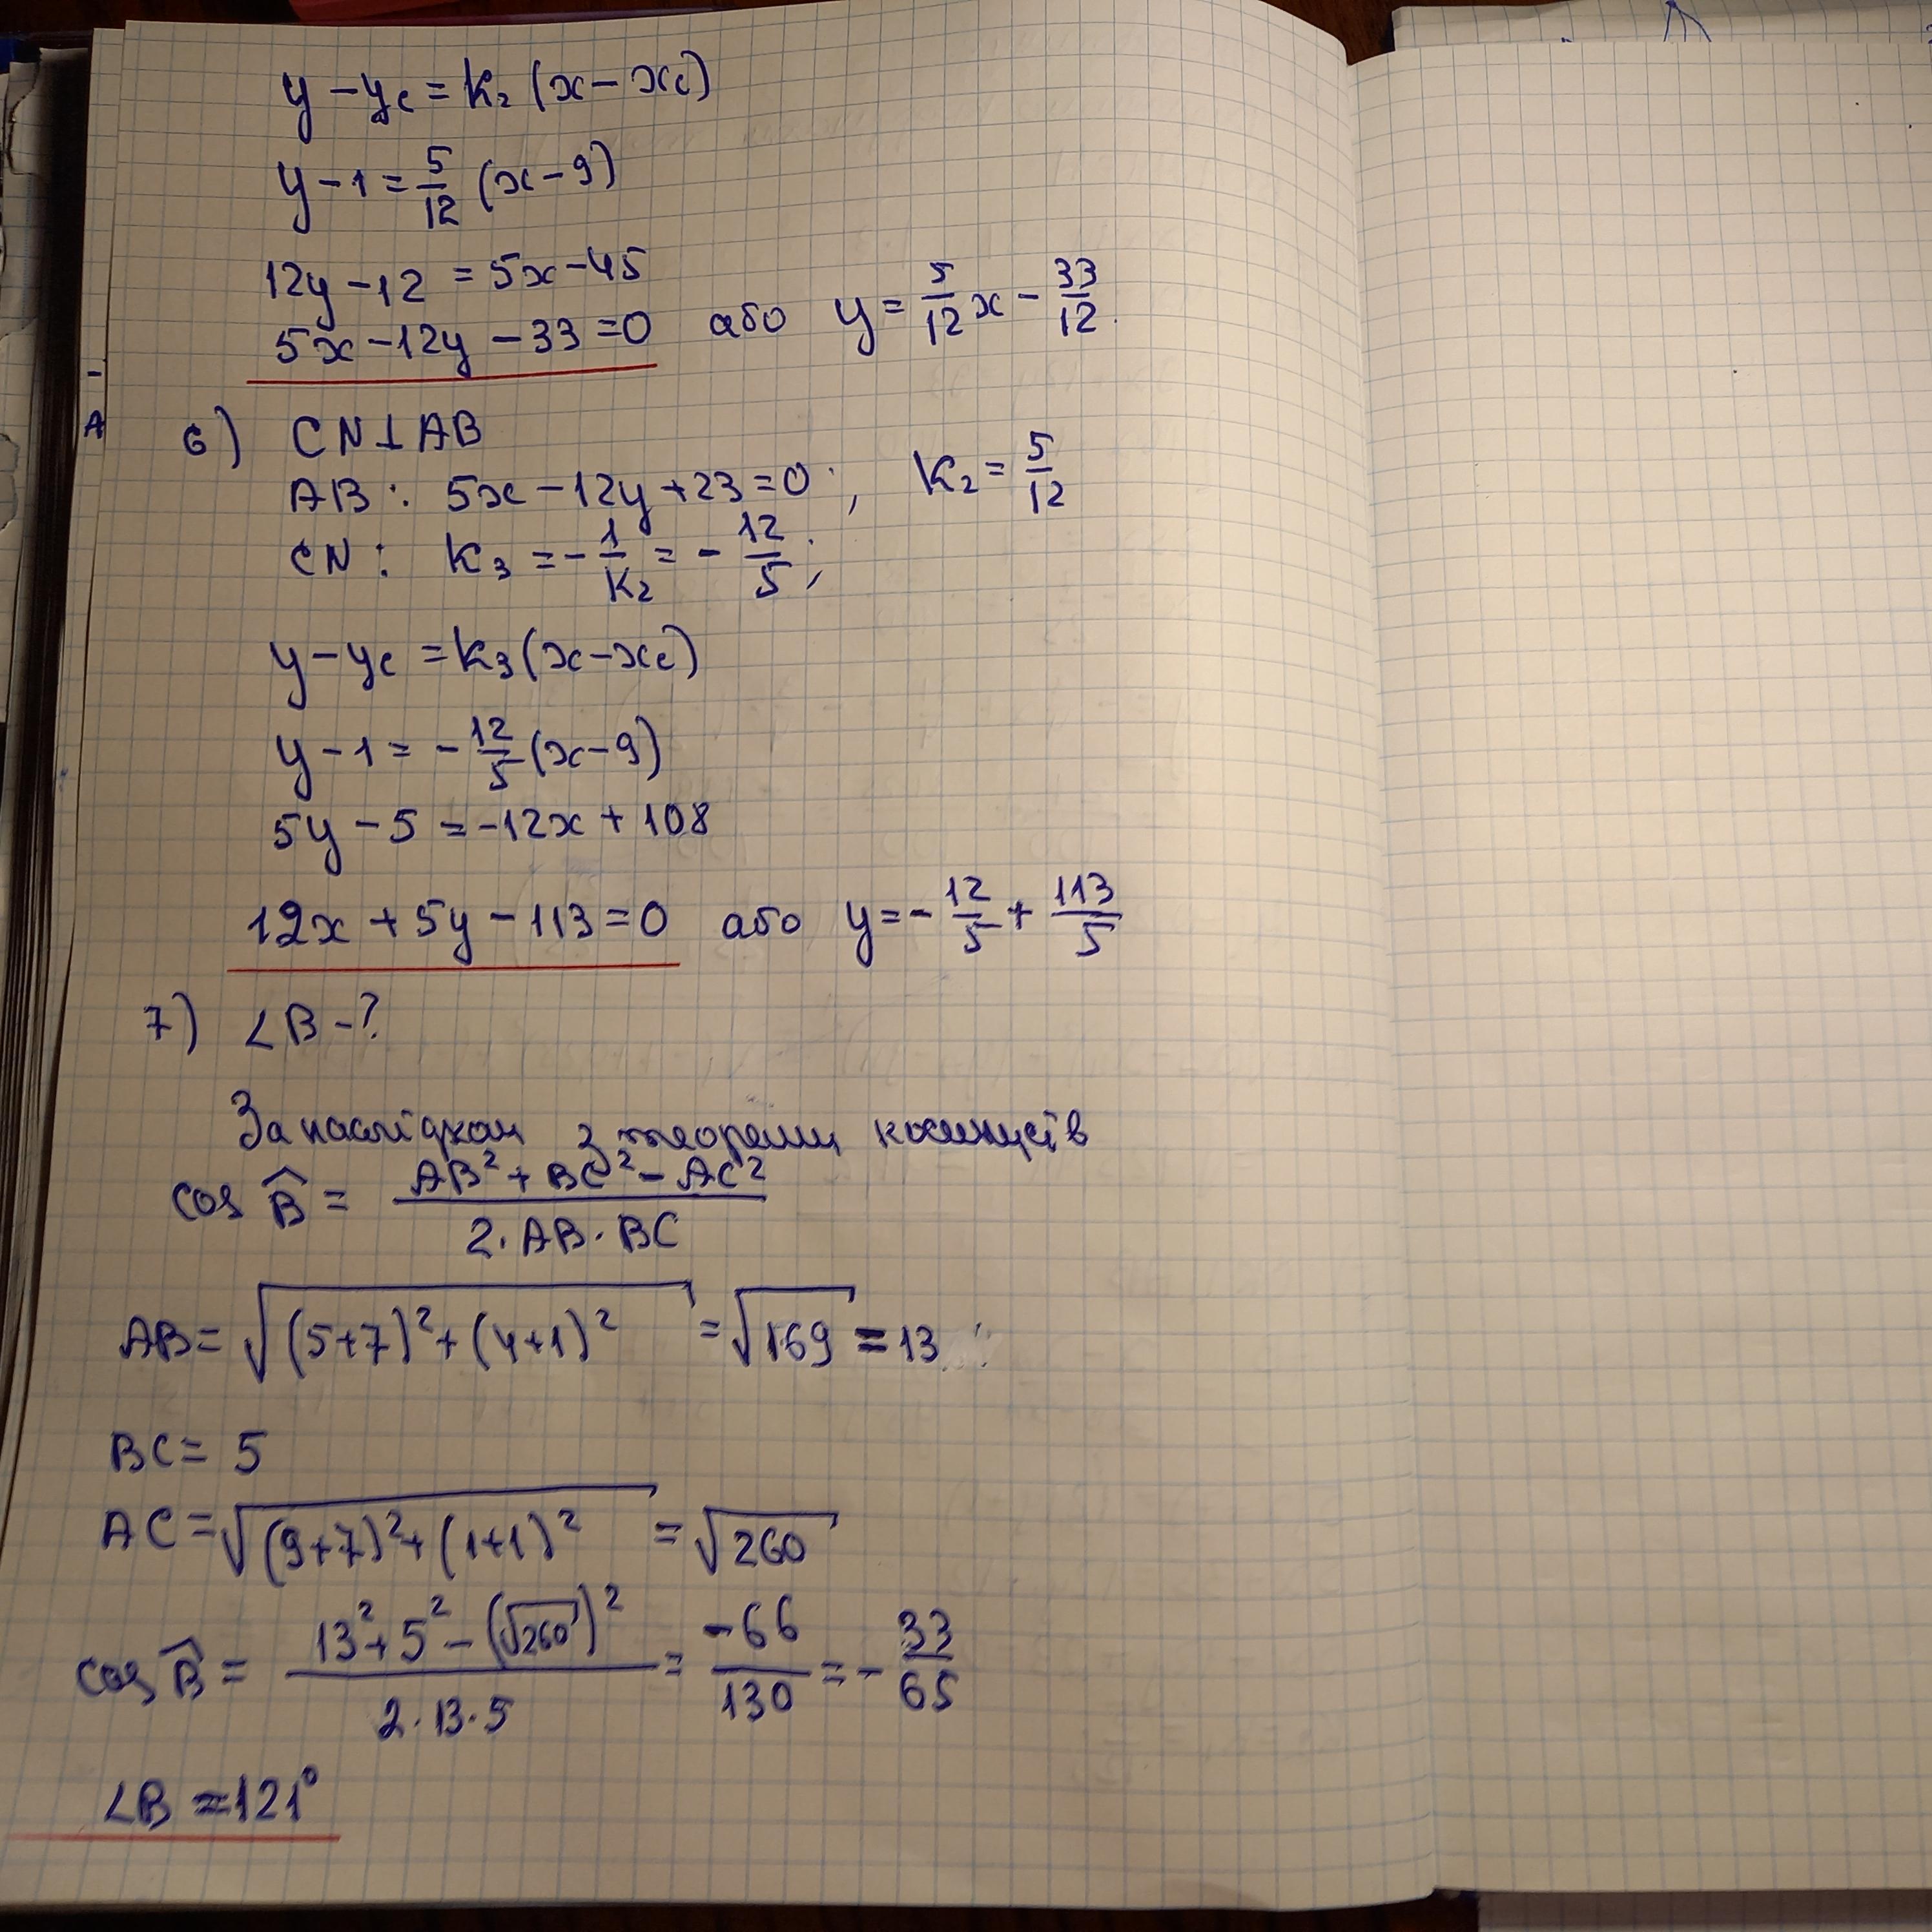 y - y_c = k₂ (x - x_c)
y - 1 = 5/12 (x - 9)
12y - 12 = 5x - 45
5x - 12y - 33 = 0 або y = 5/12 x - 33/12.
6) CN ⊥ AB
AB: 5x - 12y + 23 = 0; k₂ = 5/12
CN: k₃ = - 1/k₂ = - 12/5;
y - y_c = k₃ (x - x_c)
y - 1 = - 12/5 (x - 9)
5y - 5 = -12x + 108
12x + 5y - 113 = 0 або y = - 12/5 + 113/5
7) ∠B - ?
За наслідком з теореми косинусів
cos B̂ = (AB² + BC² - AC²)/(2·AB·BC)
AB = √((5+7)² + (4+1)²) = √169 = 13
BC = 5
AC = √((9+7)² + (1+1)²) = √260
cos B̂ = (13² + 5² - (√260)²)/(2·13·5) = -66/130 = - 33/65
∠B ≈ 121°
A